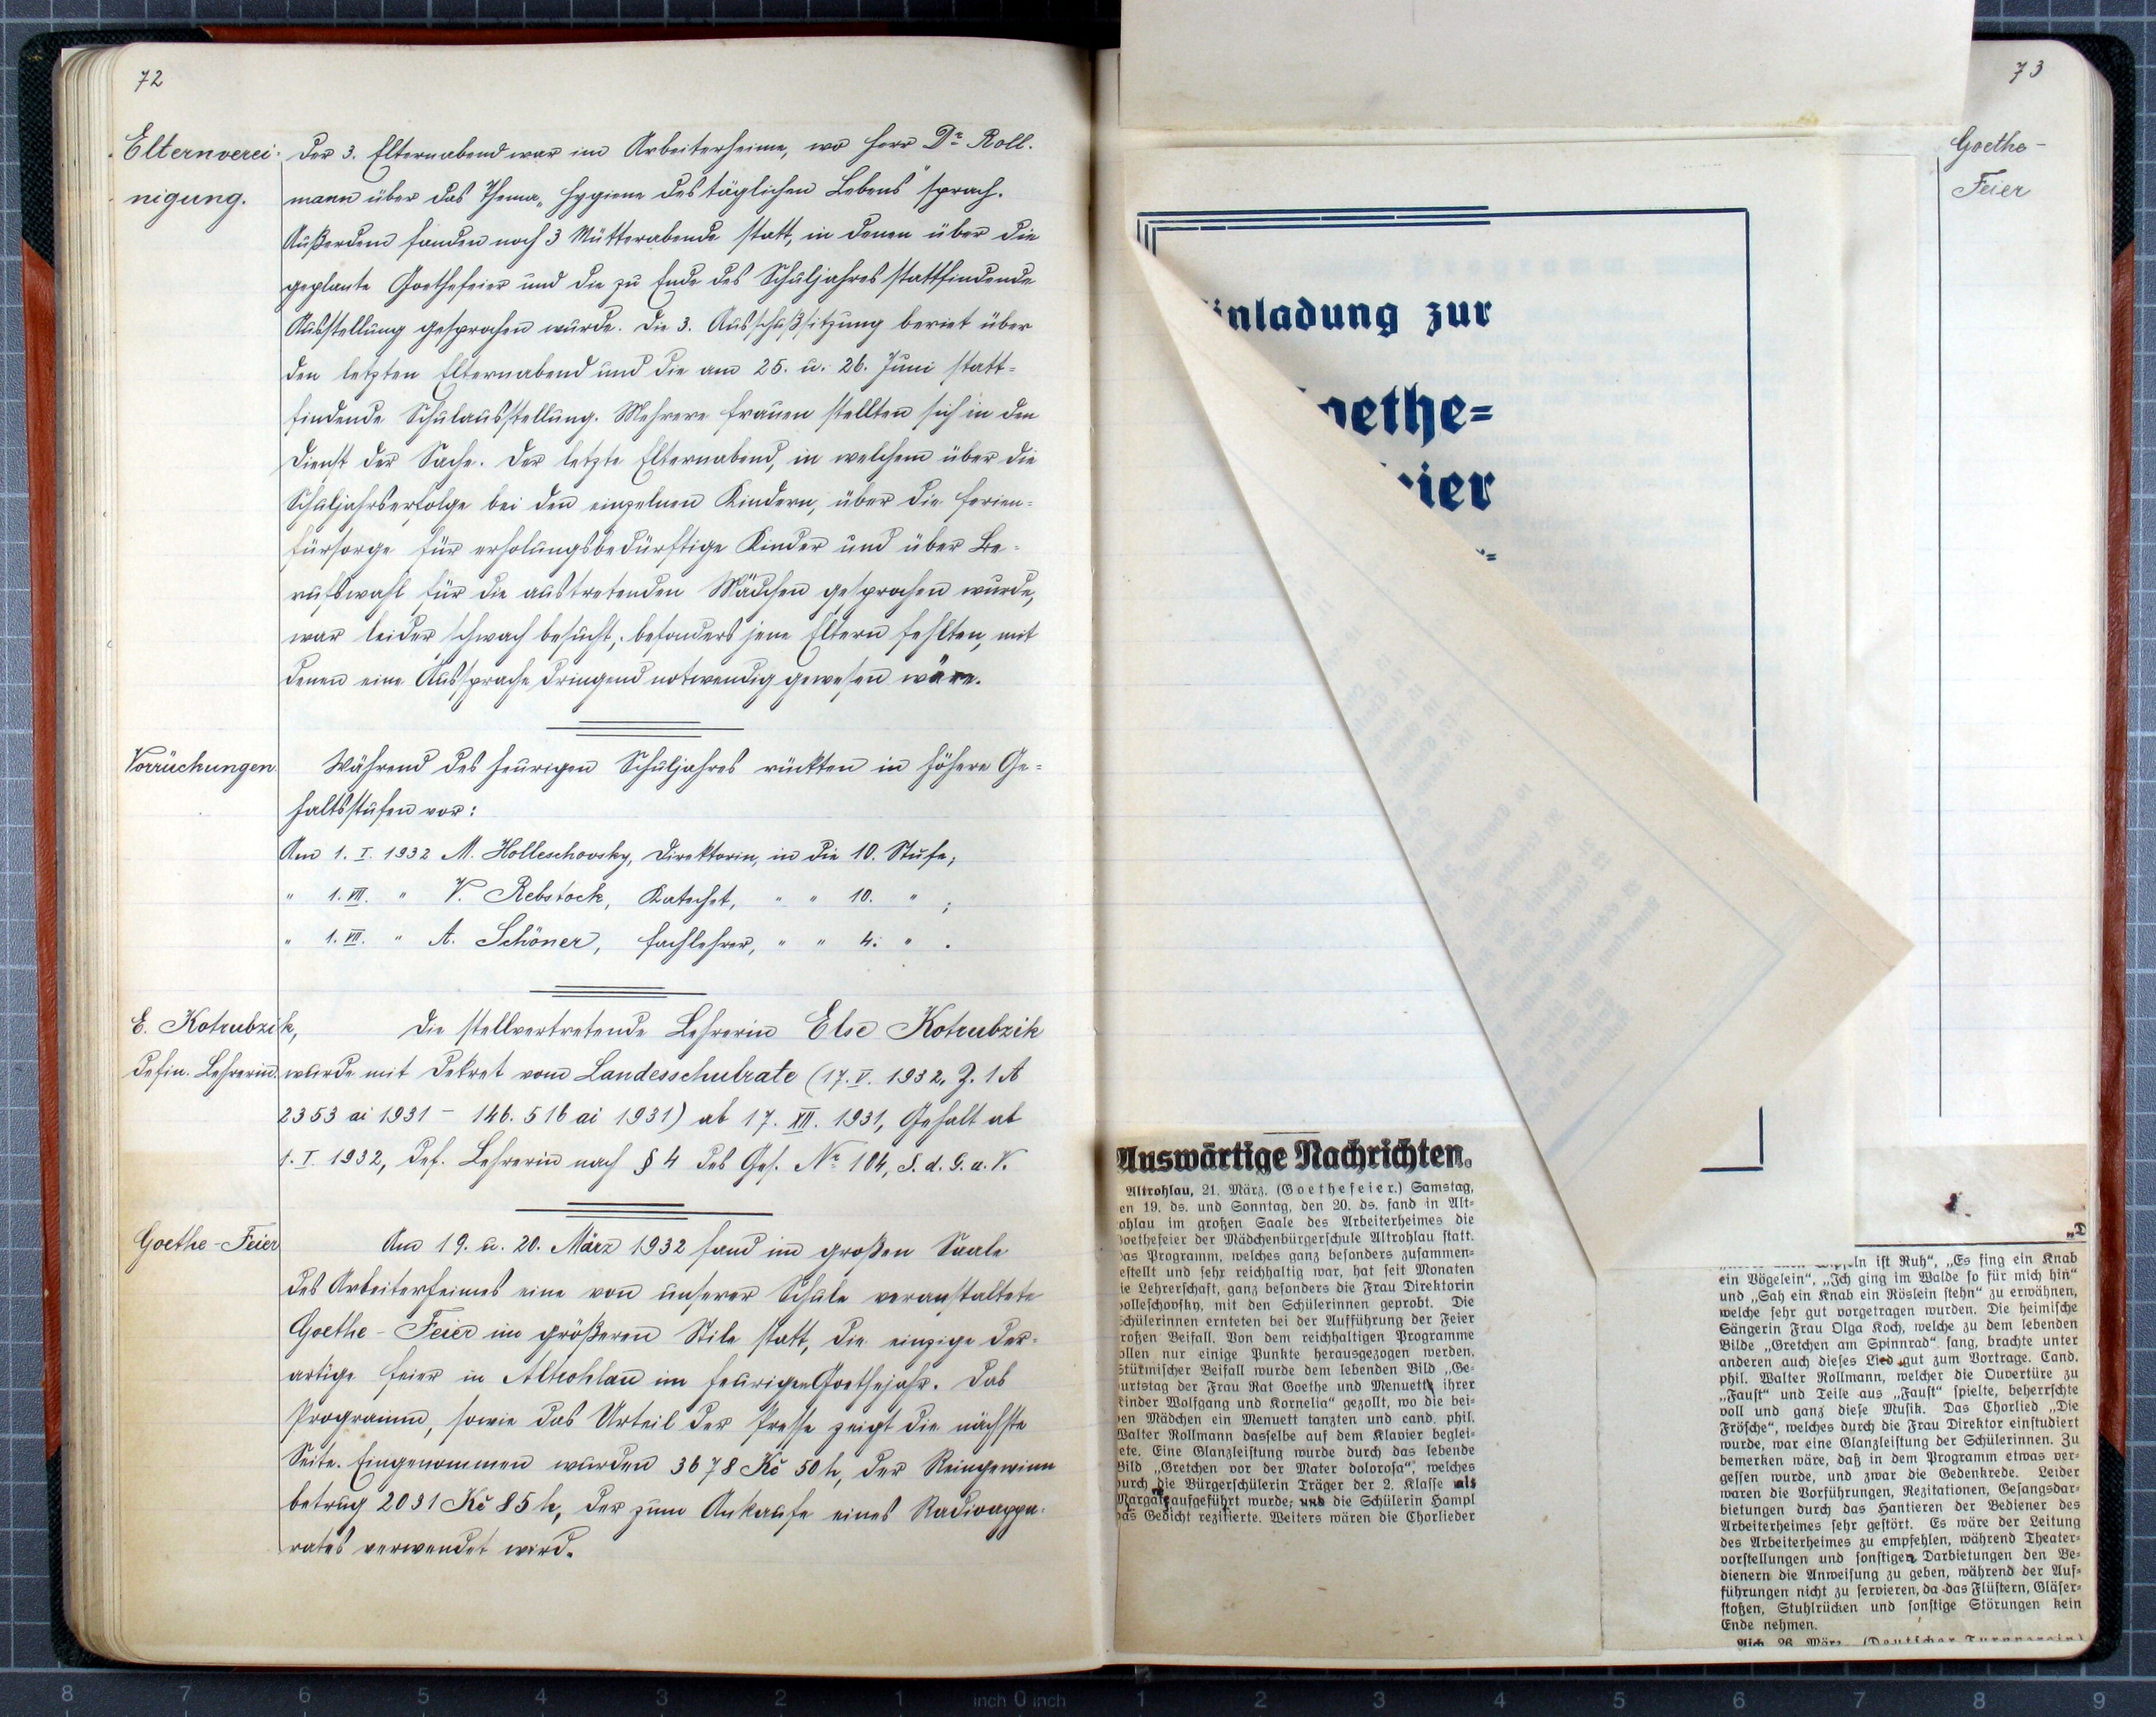 72
Elternverei-
nigung.
Der 3. Elternabend war im Arbeiterheime, wo Herr Dr. Roll-
mann über das Thema „Hygiene des täglichen Lebens" sprach.
Außerdem fanden noch 3 Mütterabende statt, in denen über die
geplante Goethefeier und die zu Ende des Schuljahres stattfindende
Ausstellung gesprochen wurde. Die 3. Ausschußsitzung beriet über
den letzten Elternabend und die am 25. u. 26. Juni statt=
findende Schulausstellung. Mehrere Frauen stellten sich in den
Dienst der Sache. Der letzte Elternabend, in welchem über die
Schuljahrserfolge bei den einzelnen Kindern, über die Ferien=
fürsorge für erholungsbedürftige Kinder und über Be=
rufswahl für die austretenden Mädchen gesprochen wurde,
war leider schwach besucht, besonders jene Eltern fehlten, mit
denen eine Aussprache dringend notwendig gewesen wäre.
Vorrückungen
Während des heurigen Schuljahres rückten in höhere Ge=
haltsstufen vor:
Am 1. I. 1932 M. Holleschovsky, Direktorin, in die 10. Stufe;
" 1. VII. " V. Rebstock, Katechet, " " 10. " ;
" 1. VII. " A. Schöner, Fachlehrer, " " 4. " .
E. Kotrubzik,
defin. Lehrerin.
Die stellvertretende Lehrerin Else Kotrubzik
wurde mit Dekret vom Landesschulrate (17. V. 1932, Z. 1 A
2353 ai 1931 - 146.516 ai 1931) ab 17. XII. 1931, Gehalt ab
1. I. 1932, def. Lehrerin nach § 4 des Ges. Nr. 104, S. d. G. u. V.
Goethe-Feier
Am 19. u. 20. März 1932 fand im großen Saale
des Arbeiterheimes eine von unserer Schule veranstaltete
Goethe-Feier im größeren Stile statt, die einzige der=
artige Feier in Altrohlau im heurigen Goethejahr. Das
Programm, sowie das Urteil der Presse zeigt die nächste
Seite. Eingenommen wurden 3678 Kč 50 h, der Reingewinn
betrug 2031 Kč 85 h, der zum Ankaufe eines Radioappa-
rates verwendet wird.
73
Goethe-
Feier
inladung zur
oethe=
ier
Auswärtige Nachrichten.
Altrohlau, 21. März. (Goethefeier.) Samstag,
en 19. ds. und Sonntag, den 20. ds. fand in Alt=
ohlau im großen Saale des Arbeiterheimes die
oethefeier der Mädchenbürgerschule Altrohlau statt.
as Programm, welches ganz besonders zusammen=
estellt und sehr reichhaltig war, hat seit Monaten
ie Lehrerschaft, ganz besonders die Frau Direktorin
olleschovsky, mit den Schülerinnen geprobt. Die
chülerinnen ernteten bei der Aufführung der Feier
roßen Beifall. Von dem reichhaltigen Programme
ollen nur einige Punkte herausgezogen werden.
Stürmischer Beifall wurde dem lebenden Bild „Ge=
urtstag der Frau Rat Goethe und Menuett ihrer
Kinder Wolfgang und Kornelia" gezollt, wo die bei=
en Mädchen ein Menuett tanzten und cand. phil.
Walter Rollmann dasselbe auf dem Klavier beglei=
ete. Eine Glanzleistung wurde durch das lebende
Bild „Gretchen vor der Mater dolorosa", welches
urch die Bürgerschülerin Träger der 2. Klasse als
Margat aufgeführt wurde; und die Schülerin Hampl
as Gedicht rezitierte. Weiters wären die Chorlieder
„D
ist Ruh", „Es fing ein Knab
ein Vögelein", „Ich ging im Walde so für mich hin"
und „Sah ein Knab ein Röslein stehn" zu erwähnen,
welche sehr gut vorgetragen wurden. Die heimische
Sängerin Frau Olga Koch, welche zu dem lebenden
Bilde „Gretchen am Spinnrad" sang, brachte unter
anderen auch dieses Lied gut zum Vortrage. Cand.
phil. Walter Rollmann, welcher die Ouvertüre zu
„Faust" und Teile aus „Faust" spielte, beherrschte
voll und ganz diese Musik. Das Chorlied „Die
Frösche", welches durch die Frau Direktor einstudiert
wurde, war eine Glanzleistung der Schülerinnen. Zu
bemerken wäre, daß in dem Programm etwas ver=
gessen wurde, und zwar die Gedenkrede. Leider
waren die Vorführungen, Rezitationen, Gesangsdar=
bietungen durch das Hantieren der Bediener des
Arbeiterheimes sehr gestört. Es wäre der Leitung
des Arbeiterheimes zu empfehlen, während Theater=
vorstellungen und sonstigen Darbietungen den Be=
dienern die Anweisung zu geben, während der Auf=
führungen nicht zu servieren, da das Flüstern, Gläser=
stoßen, Stuhlrücken und sonstige Störungen kein
Ende nehmen.
Aich, 26. März. (Deutscher Turnverein)
8 7 6 5 4 3 2 1 inch 0 inch 1 2 3 4 5 6 7 8 9